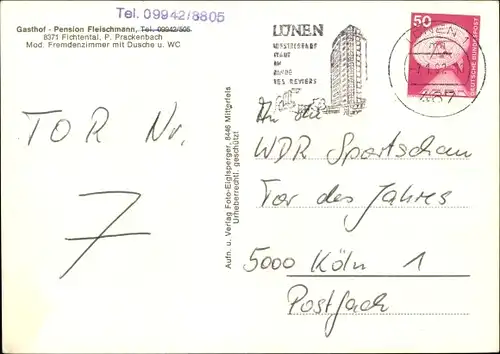 Tel. 09942/8805
Gasthof - Pension Fleischmann, Tel. 09942/505
8371 Fichtental, P. Prackenbach
Mod. Fremdenzimmer mit Dusche u. WC
TOR Nr.
7
Aufn. u. Verlag Foto-Eiglsperger, 8446 Mitterfels
Urheberrechtl. geschützt!
LÜNEN
AM
RANDE
DES REVIERS
50
DEUTSCHE BUNDESPOST
An die
WDR Sportschau
Tor des Jahres
5000 Köln 1
Postfach